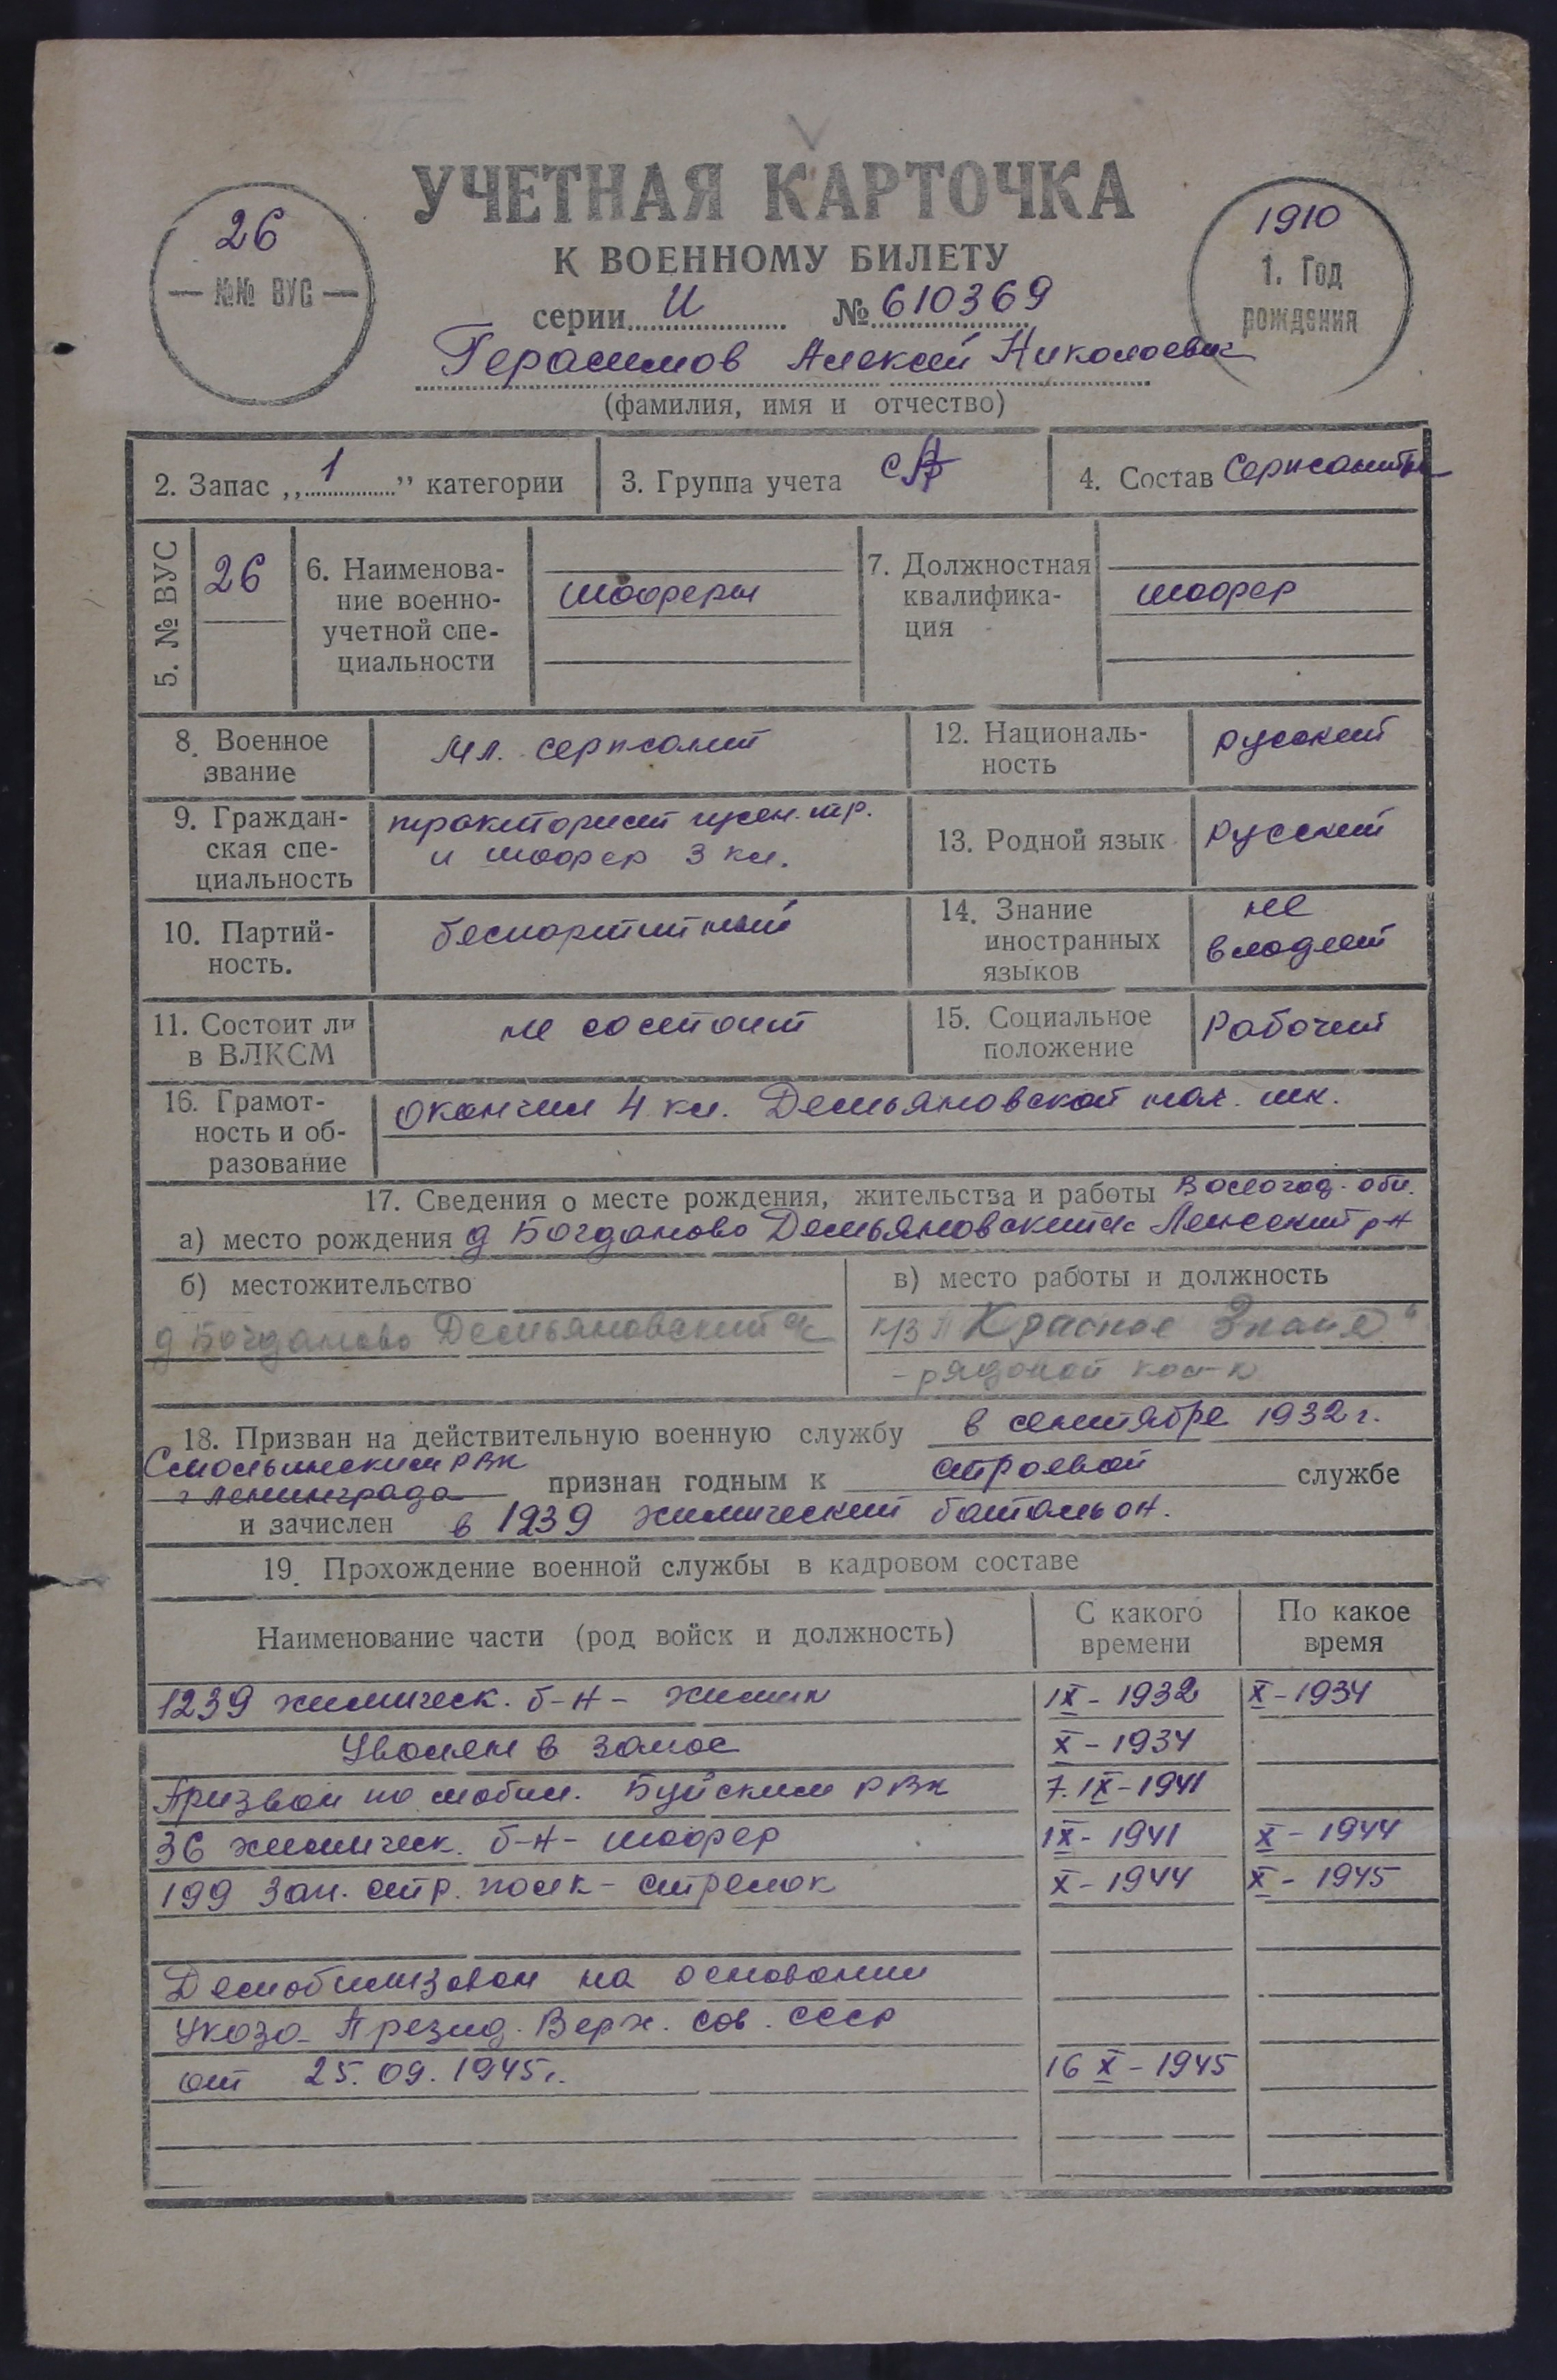 УЧЕТНАЯ КАРТОЧКА
К ВОЕННОМУ БИЛЕТУ
26
— №№ ВУС —
1910
1. Год
рождения
серии И № 610369
Герасимов Алексей Николаевич
(фамилия, имя и отчество)
2. Запас „1” категории
3. Группа учета СА
4. Состав Сержанты
5. № ВУС
26
6. Наименова-
ние военно-
учетной спе-
циальности
шофера
7. Должностная
квалифика-
ция
шофер
8. Военное
звание
Мл. сержант
12. Националь-
ность
русский
9. Граждан-
ская спе-
циальность
тракторист гусен. тр.
и шофер 3 кл.
13. Родной язык
русский
10. Партий-
ность.
беспартийный
14. Знание
иностранных
языков
не
владеет
11. Состоит ли
в ВЛКСМ
не состоит
15. Социальное
положение
Рабочий
16. Грамот-
ность и об-
разование
окончил 4 кл. Демьяновской нач. шк.
17. Сведения о месте рождения, жительства и работы Вологод. обл.
а) место рождения д Богданово Демьяновский с/с Ленский р-н
б) местожительство
д Богданово Демьяновский с/с
в) место работы и должность
к/з "Красное Знамя"
- рядовой кол-к
18. Призван на действительную военную службу в сентябре 1932 г.
Смольнинским РВК
г Ленинграда признан годным к строевой службе
и зачислен в 1239 химический батальон.
19. Прохождение военной службы в кадровом составе
Наименование части (род войск и должность)
С какого
времени
По какое
время
1239 химическ. б-н - химик IX - 1932 X - 1934
Уволен в запас X - 1934
Призван по мобил. Буйским РВК 7.IX - 1941
36 химическ. б-н - шофер IX - 1941 X - 1944
199 Зап. стр. полк - стрелок X - 1944 X - 1945
Демобилизован на основании
Указа Презид. Верх. Сов. СССР
от 25.09.1945г. 16 X - 1945